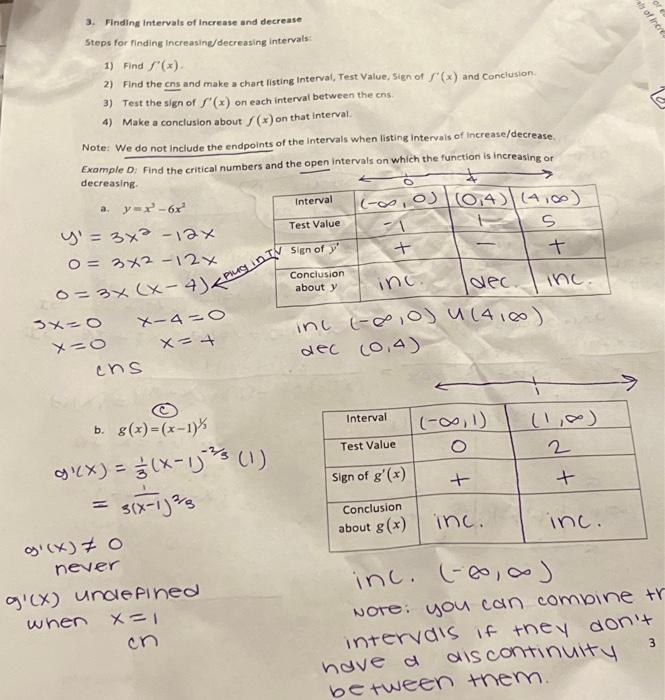 3. Finding Intervals of Increase and decrease
Steps for finding increasing/decreasing intervals:
1) Find f'(x).
2) Find the cns and make a chart listing Interval, Test Value, Sign of f'(x) and Conclusion.
3) Test the sign of f'(x) on each interval between the cns.
4) Make a conclusion about f(x) on that interval.
Note: We do not include the endpoints of the intervals when listing intervals of increase/decrease.
Example D: Find the critical numbers and the open intervals on which the function is increasing or
decreasing.
0 4
a. y=x³−6x²
Interval (-∞,0) (0,4) (4,∞)
Test Value -1 1 5
Sign of y' + − +
Conclusion about y inc. dec. inc.
y' = 3x² -12x
0 = 3x2 -12x
0 = 3x(x-4) ← plug in TV
3x=0 x-4=0
x=0 x=4
cns
inc (-∞,0) U (4,∞)
dec (0,4)
c
b. g(x)=(x−1)^⅓
1
Interval (-∞,1) (1,∞)
Test Value 0 2
Sign of g'(x) + +
Conclusion about g(x) inc. inc.
g'(x) = 1/3 (x-1)^-2/3 (1)
= 1/3(x-1)^2/3
g'(x) ≠ 0
never
g'(x) undefined
when x=1
cn
inc. (-∞,∞)
Note: you can combine
intervals if they don't
have a discontinuity
between them.
3